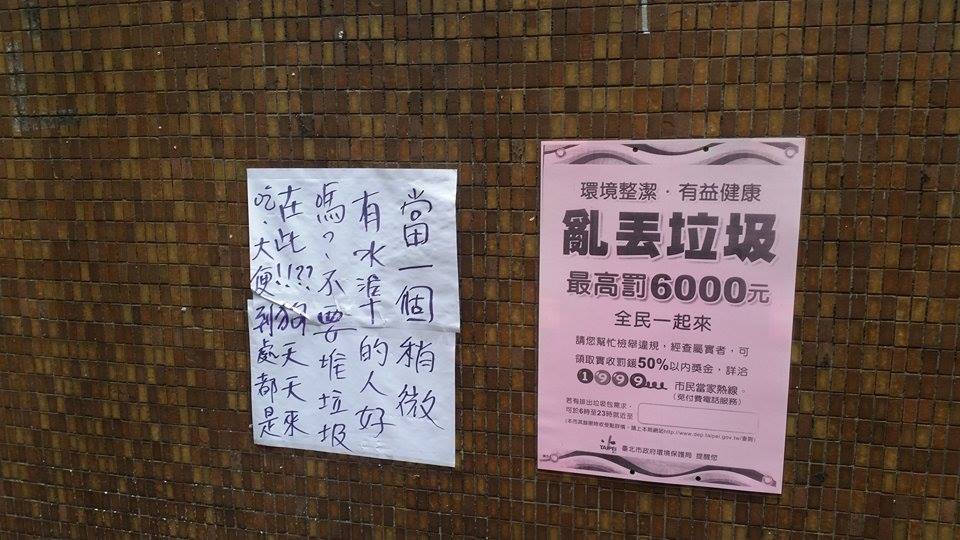 當一個稍微
有水準的人好
嗎?,不要堆垃圾
在此!!??狗天天來
吃,大便到處都是
環境整潔.有益健康
亂丟垃圾
最高罰6000元
全民一起來
請您幫忙檢舉違規,經查屬實者,可
領取實收罰鍰50%以內獎金,詳洽
1999 市民當家熱線。
(免付費電話服務)
若有排出垃圾包需求,
可於6時至23時就近至
http://www.dep.taipei.gov.tw/查詢)
TAIPEI
臺北市政府環境保護局 提醒您